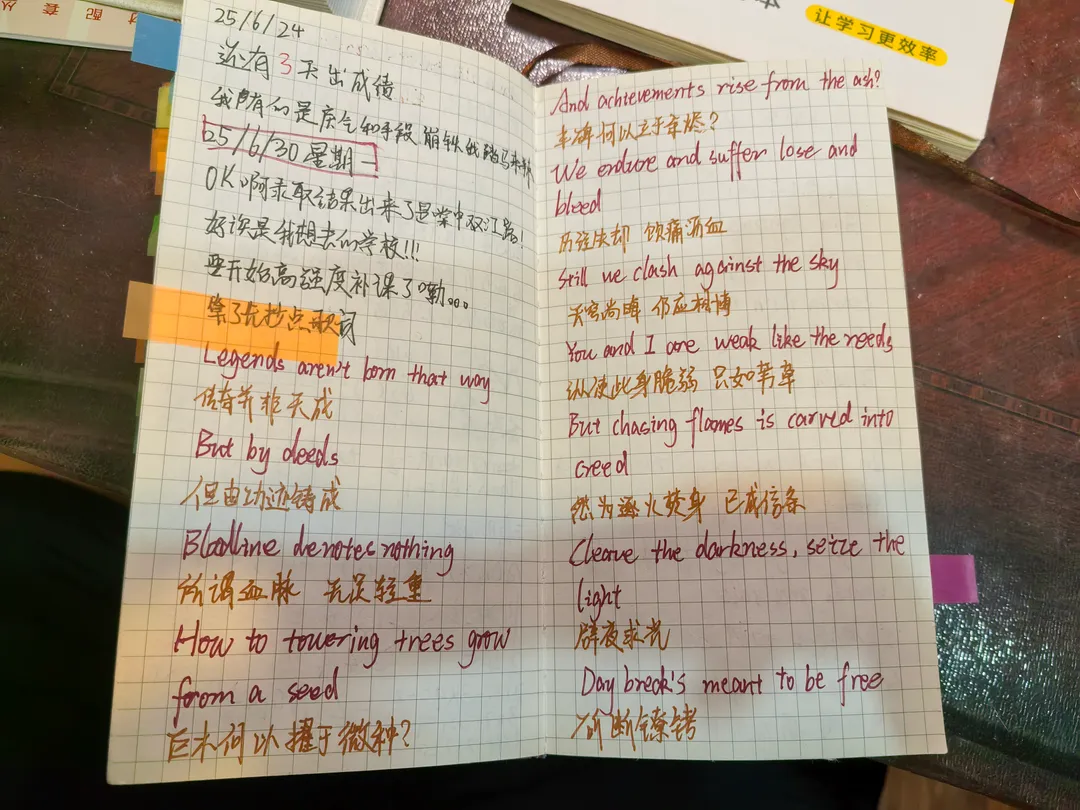 配套丛
本
让学习更效率
25/6/24
还有3天出成绩
我所有的是灵气和手段 崩铁
25/6/30 星期一
OK啊录取结果出来了是 中双江路!
好诶是我想去的学校!!!
要开始高强度补课了嘞。。。
算了先抄点歌词
Legends aren't born that way
传奇并非天成
But by deeds
但由功迹铸成
Bloodline denotes nothing
所谓血脉 无足轻重
How to towering trees grow
from a seed
巨木何以擢于微种?
And achievements rise from the ash?
丰碑何以立于余烬?
We endure and suffer lose and
bleed
历经失却 饮痛沥血
Still we clash against the sky
天穹尚晦 仍应相搏
You and I are weak like the reeds
纵使此身脆弱 只如苇草
But chasing flames is carved into
creed
然为逐火焚身 已成信条
Cleave the darkness, seize the
light
辟夜求光
Day break's meant to be free
断镣铐